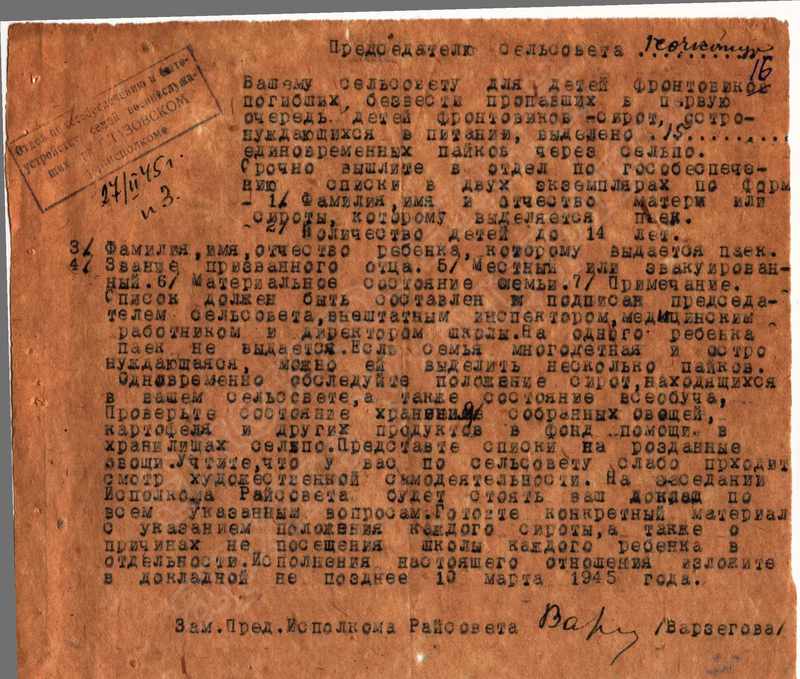 Председателю сельсовета
16
Отдел по гособеспечению и быто-
устройству семей военнослужа-
щих при ГУЗОВСКОМ
Райисполкоме
27/II 45 г.
и 3.
Вашему сельсовету для детей фронтовиков
погибших, безвести пропавших в первую
очередь детей фронтовиков -сирот, остро-
нуждающихся в питании, выделено .15...........
единовременных пайков через сельпо.
Срочно вышлите в отдел по гособеспече-
нию списки в двух экземплярах по форм
- 1/ Фамилия,имя и отчество матери или
сироты, которому выделяется паек.
- 2/ Количество детей до 14 лет.
3/ Фамилия,имя,отчество ребенка,которому выдается паек.
4/ Звание призванного отца. 5/ Местный или эвакуирован-
ный.6/ Материальное состояние семьи.7/ Примечание.
Список должен быть составлен и подписан председа-
телем сельсовета,внештатным инспектором,медицинским
работником и директором школы.На одного ребенка
паек не выдается.Если семья многодетная и остро
нуждающаяся, можно ей выделить несколько пайков.
Одновременно обследуйте положение сирот,находящихся
в вашем сельсовете,а также состояние всеобуча,
Проверьте состояние хранения собранных овощей,
картофеля и других продуктов в фонд помощи в
хранилищах сельпо.Представте списки на розданные
овощи.Учтите,что у вас по сельсовету слабо прходит
смотр художественной самодеятельности. На заседании
Исполкома Райсовета будет стоять ваш доклад по
всем указанным вопросам.Готовте конкретный материал
с указанием положения каждого сироты,а также о
причинах не посещения школы каждого ребенка в
отдельности.Исполнения настоящего отношения изложите
в докладной не позднее 10 марта 1945 года.
Зам.Пред.Исполкома Райсовета Варз /Варзегова/